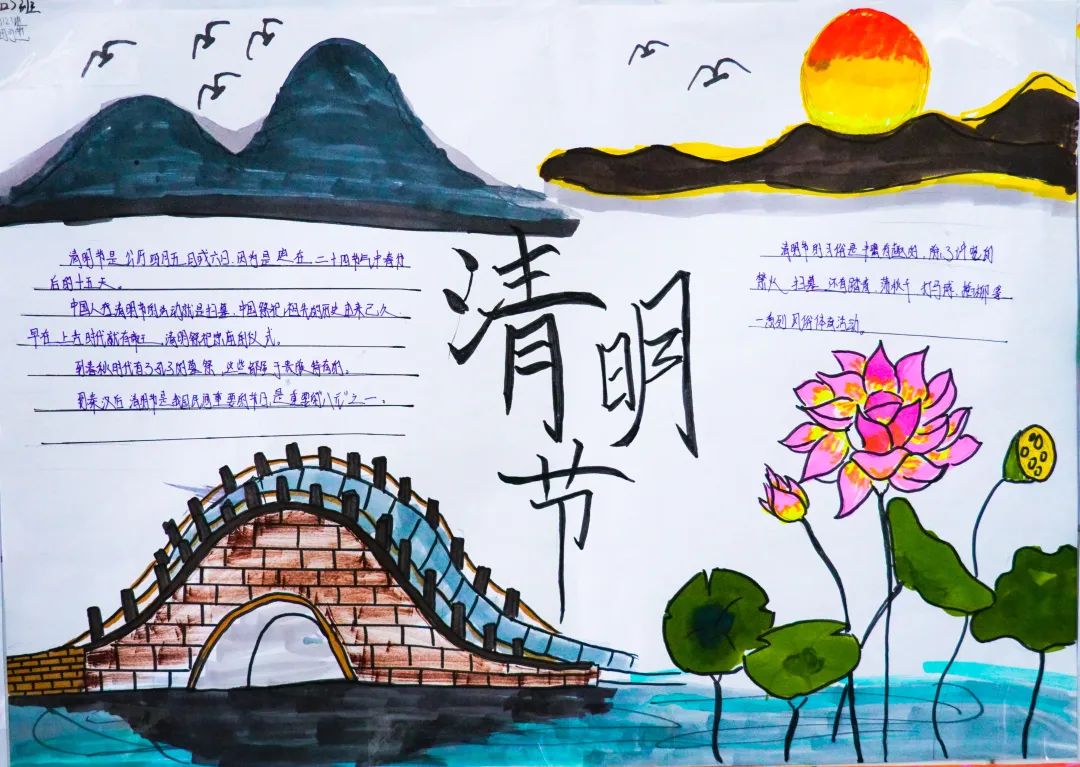 班
清明节是公历四月五日或六日，因为是在二十四节气中春分
后的十五天。
中国人过清明节的活动就是扫墓，中国祭祀祖先的历史由来已久
早在上古时代就有，清明祭祀的仪式。
到春秋时代有了的墓祭，这些都属于贵族特有的。
到秦汉后清明节是我国民间重要的节日，是重要的"八节"之一。
清明节
清明节的习俗是丰富有趣的，除了讲究的
禁火、扫墓，还有踏青、荡秋千、打马球、插柳等
一系列风俗体育活动。